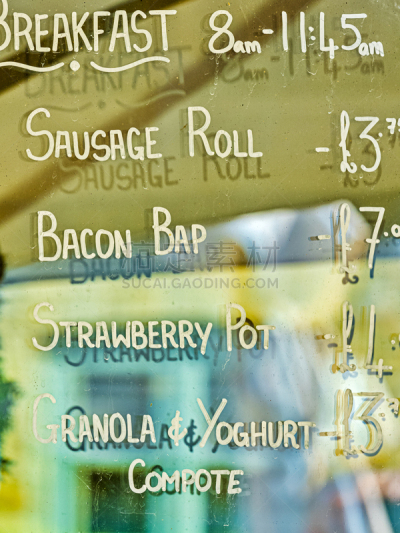 BREAKFAST 8am-11:45am
SAUSAGE ROLL - £3.75
BACON BAP - £7.0
STRAWBERRY POT - £4.
GRANOLA & YOGHURT - £3.
COMPOTE
搞定素材
SUCAI.GAODING.COM